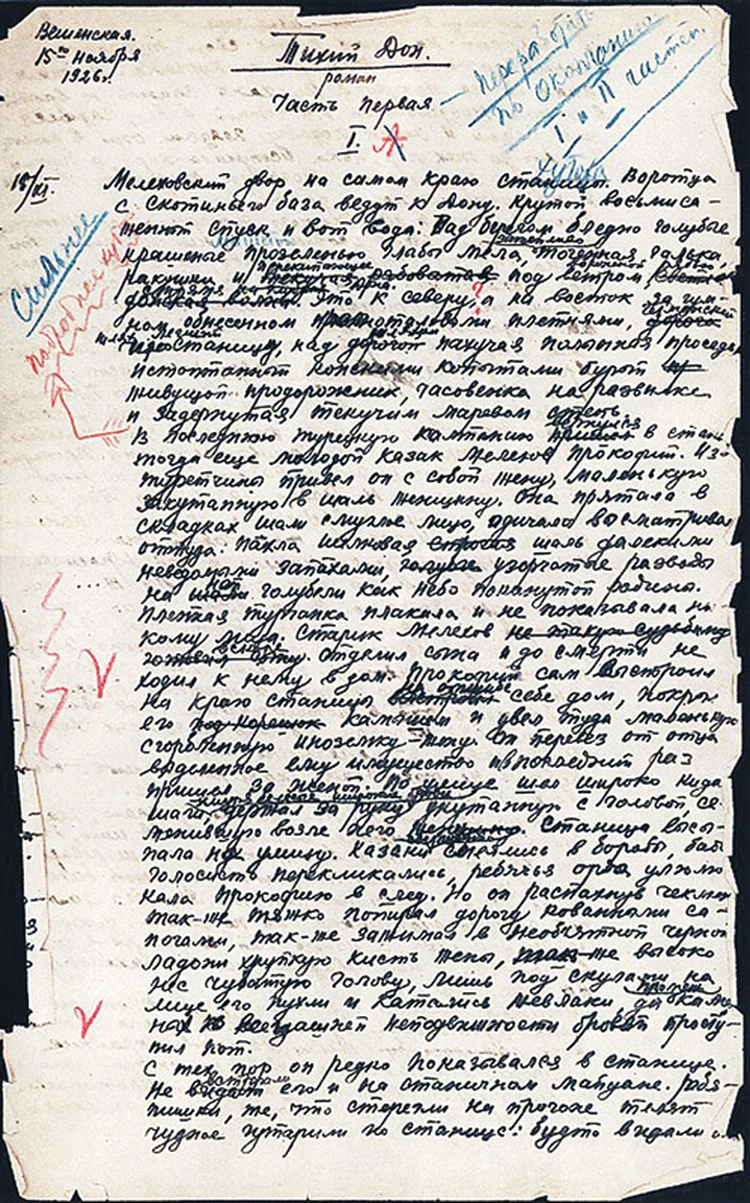 Вешенская.
15го ноября
1926 г.
Тихий Дон.
роман
Часть первая
I.
Переработать
по окончании
I и II частей.
хутора
15/XI.
Сильнее
подробнее
Мелеховский двор на самом краю станицы. Воротца
с скотиньего база ведут к Дону. Крутой восьмиса-
женный спуск и вот вода: Над берегом бледно голубые
крашеные прозеленью глыбы мела, точеная галька,
ракушки и под ветром
Это к северу, а на восток за гум-
ном обнесенном плетнями,
станицу, над дорогой пахучая полынная проседь
истоптанный конскими копытами бурый
живущой придорожник, часовенка на развилке
и задернутая текучим маревом степь.
В последнюю турецкую кампанию вернулся в стан.
тогда еще молодой казак Мелехов Прокофий. Из
туретчины привел он с собой жену, маленькую
закутанную в шаль женщину. Она прятала в
складках шали смуглое лицо, одичало высматривая
оттуда. Пахла шелковая шаль далекими
неведомыми запахами, узорчатые разводы
на ней голубели как небо покинутой родины.
Пленная турчанка плакала и не показывала ни-
кому лица. Старик Мелехов не такую судьбину
готовил сыну. Вскоре отделил сына и до смерти не
ходил к нему в дом. Прокофий сам выстроил
на краю станицы себе дом, покрыл
его камышом и увел туда маленькую
сгорбленную иноземку-жену. Он перевез от отца
выделенное ему имущество и в последний раз
пришел за женой. По улице шел широко кидая
шаги, держал за руку укутанную с головой, се-
менившую возле него женщину. Станица высы-
пала на улицу. Казаки смеялись в бороды, бабы
голосисто перекликались, ребячья орда улюлю
кала Прокофию в след. Но он распахнув чекмень
так-же тяжко попирал дорогу кованными са-
погами, так-же зажимая в необъятной черной
ладони хрупкую кисть жены, так-же высоко
нес чубатую голову, лишь под скулами на
лице его пухли и катались желваки, да
неподвижности бровей просту-
пил пот.
С тех пор он редко показывался в станице.
Не его и на станичном майдане. Ребя-
тишки, те, что стерегли на прогоне телят
чудное гутарили по станице: Будто видали